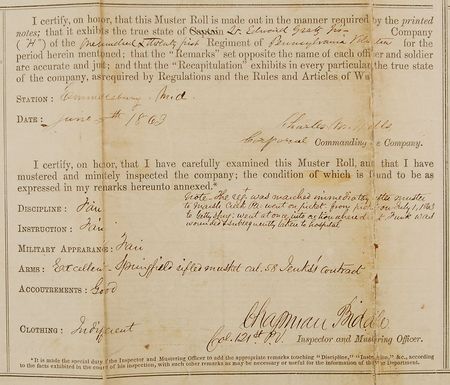 I certify, on honor, that this Muster Roll is made out in the manner required by the printed
notes; that it exhibits the true state of Captain Lt Edward Company
("H") of the One hundred & Twenty first Regiment of Pennsylvania for the
period herein mentioned; that the "Remarks" set opposite the name of each officer and soldier
are accurate and just; and that the "Recapitulation" exhibits in every particular the true state
of the company, as required by Regulations and the Rules and Articles of Wa
STATION: Emmitsburg Md
DATE: June 1863
Charles
Corporal Commanding the Company.
I certify, on honor, that I have carefully examined this Muster Roll, and that I have
mustered and minutely inspected the company; the condition of which is found to be as
expressed in my remarks hereunto annexed.*
DISCIPLINE: Fair
INSTRUCTION: Fair
MILITARY APPEARANCE: Fair
Note - The regt was marched immediately after muster
to Marsh Creek Pa. went on picket - from picket on July 1, 1863
to Gettysburg. went at once into action where was
wounded & subsequently taken to hospital
ARMS: Excellent - Springfield rifled musket cal. 58 Jenks's contract
ACCOUTREMENTS: Good
CLOTHING: Indifferent
Chapman Biddle
Col. 121st P.V. Inspector and Mustering Officer.
*It is made the special duty of the Inspector and Mustering Officer to add the appropriate remarks touching "Discipline," "Instruction," &c., according
to the facts exhibited in the course of his inspection, with such other remarks as may be necessary or useful for the information of the Department.